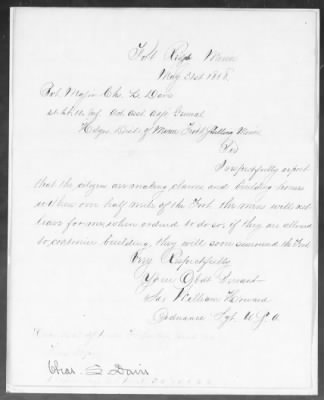 Fort Ridgely Minn
May 31st 1868.
Bvt Major Chs. S. Davis
1st Lt. U.S. Inf. Act. Asst. Adjt. General
Hdqrs. Dist. of Minn Fort Snelling Minn
Sir
I respectfully report
that the citizens are making claims and building houses
within one half mile of the Fort. the men will not
leave for me, when ordered to do so, if they are allowed
to continue building, they will soon surround the Fort
Very Respectfully
Your Obdt Servant
William Howard
Ordnance Sgt. U.S.A
Chas. S Davis